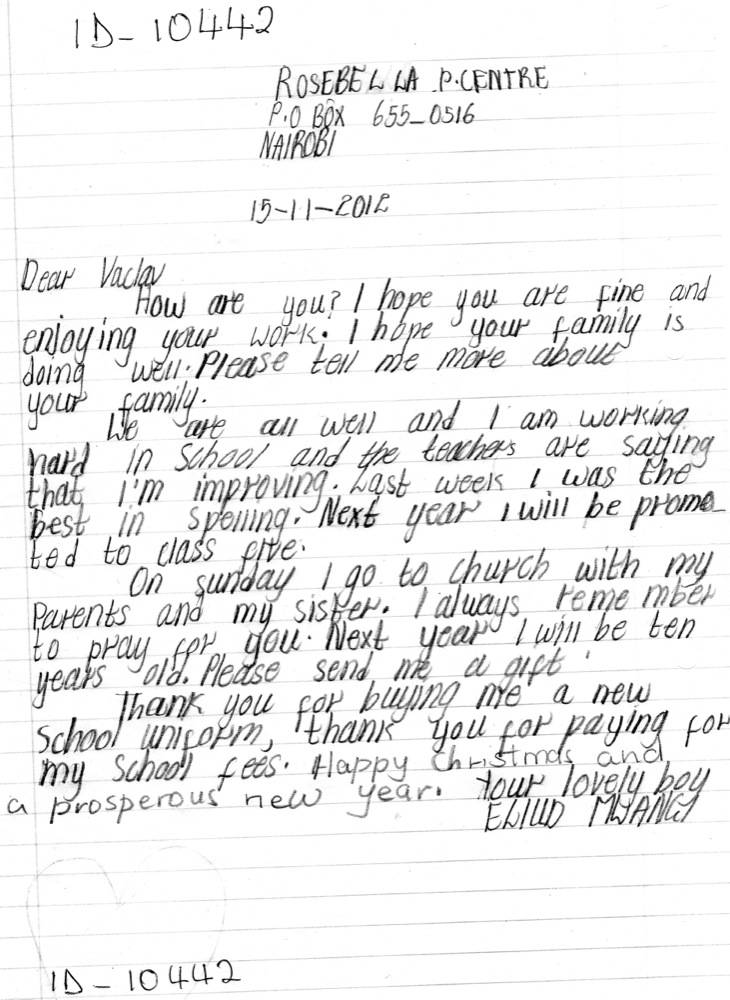 ID-10442
ROSEBELLA P.CENTRE
P.O BOX 655-0516
NAIROBI
15-11-2012
Dear Vaclav
How are you? I hope you are fine and
enjoying your work. I hope your family is
doing well. Please tell me more about
your family.
We are all well and I am working
hard in school and the teachers are saying
that I'm improving. Last week I was the
best in spelling. Next year I will be promo-
ted to class five.
On sunday I go to church with my
Parents and my sister. I always remember
to pray for you. Next year I will be ten
years old. Please send me a gift.
Thank you for buying me a new
School uniform, thank you for paying for
my School fees. Happy Christmas and
a prosperous new year. Your lovely boy
ELIUD MWANGI
ID-10442